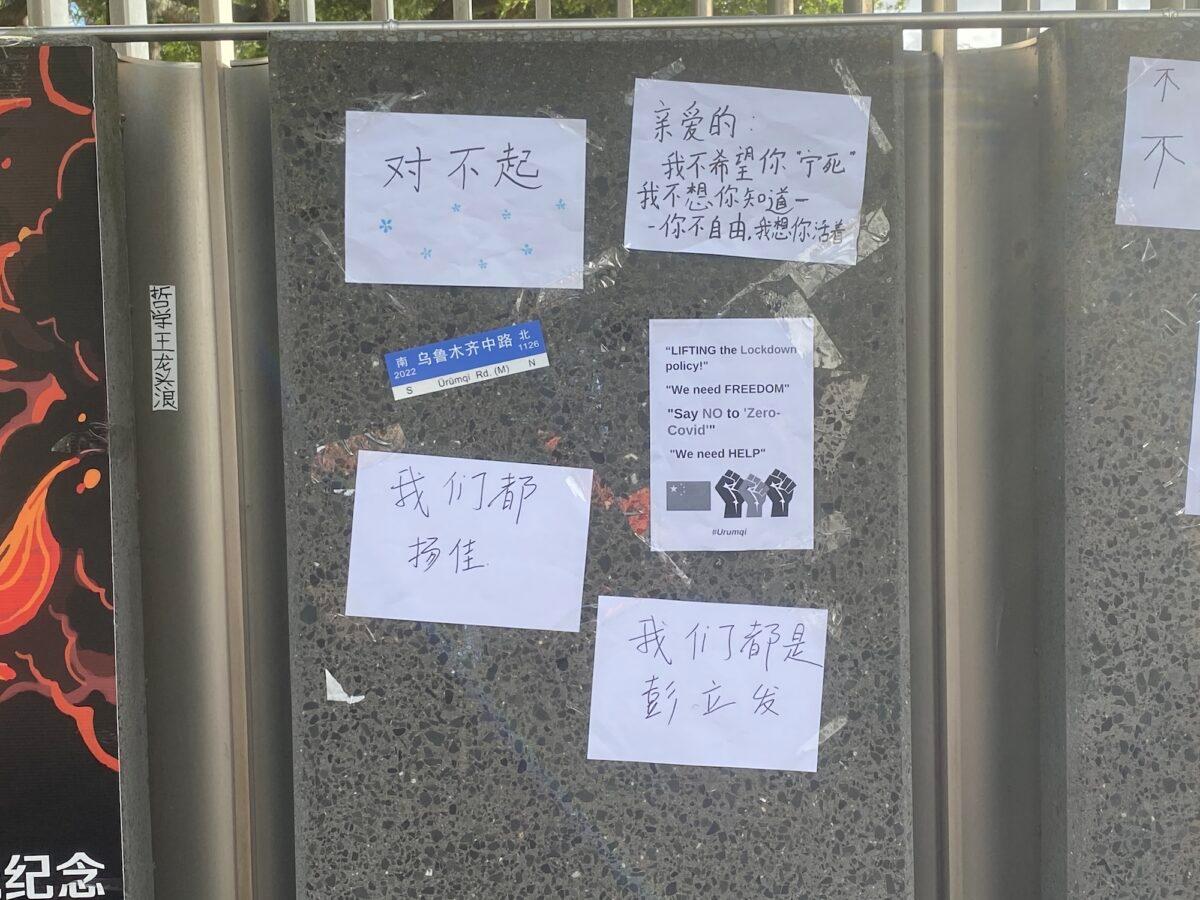 对不起
亲爱的：
我不希望你"宁死"
我不想你知道一
-你不自由，我想你活着
哲学王龙头浪
南 乌鲁木齐中路 北
2022 1126
S Ürümqi Rd. (M) N
"LIFTING the Lockdown
policy!"
"We need FREEDOM"
"Say NO to 'Zero-
Covid'"
"We need HELP"
#Urumqi
我们都
扬佳.
我们都是
彭立发
纪念
不
不